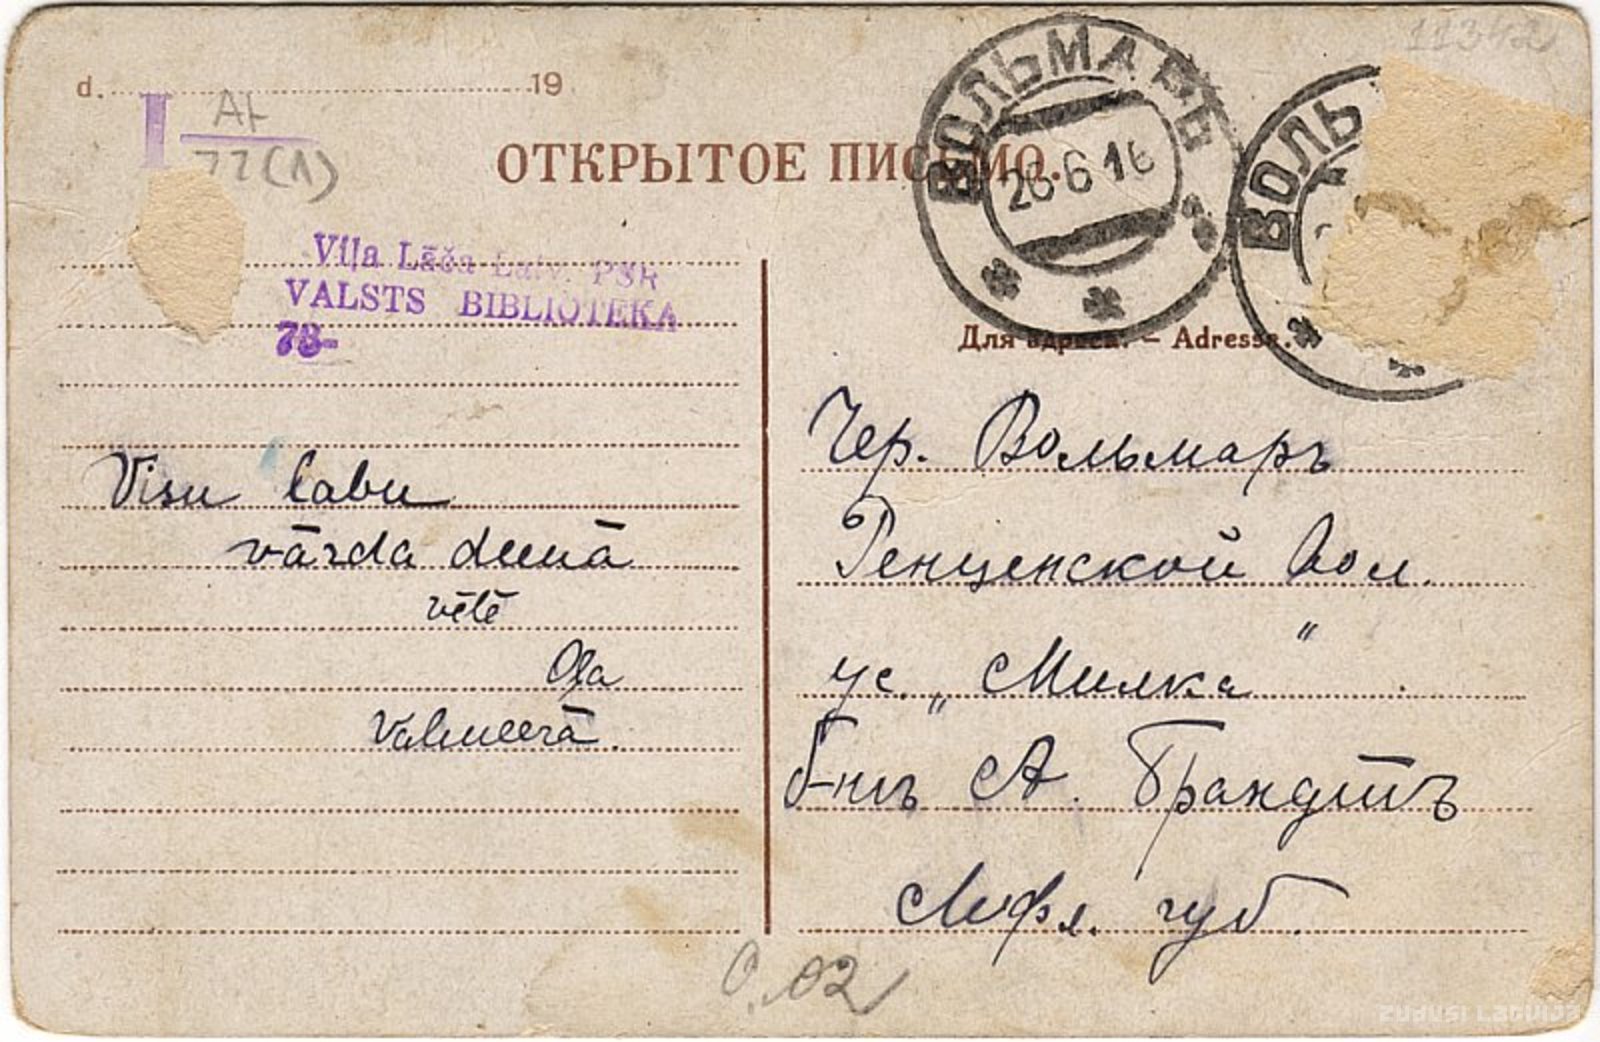 d. 19
11342
I A+
77(1)
ОТКРЫТОЕ ПИСЬМО.
ВОЛЬМАРЪ
26 6 16
ВОЛЬ
Viļa Lāča Latv. PSR
VALSTS BIBLIOTEKA
78-
Для адреса. — Adresse.
Visu labu
vārda deenā
vēlē
Oļa
Valmeerā.
Чер. Вольмаръ
Ренценской Вол.
ус. „Милка"
А. Брандтъ
Лифл. губ.
0.02
ZUDUSI LATVIJA